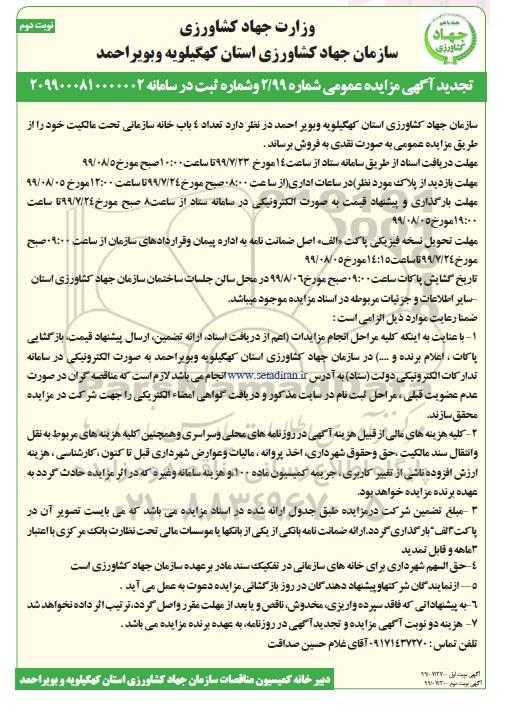 نوبت دوم
همه با هم
جهاد
کشاورزی
وزارت جهاد کشاورزی
سازمان جهاد کشاورزی استان کهگیلویه وبویراحمد
تجدید آگهی مزایده عمومی شماره ۲/۹۹ وشماره ثبت در سامانه ۲۰۹۹۰۰۰۸۱۰۰۰۰۰۰۲
سازمان جهاد کشاورزی استان کهگیلویه وبویر احمد در نظر دارد تعداد ۴ باب خانه سازمانی تحت مالکیت خود را از
طریق مزایده عمومی به صورت نقدی به فروش برساند .
مهلت دریافت اسناد از طریق سامانه ستاد از ساعت۱۴مورخ ۹۹/۷/۲۳ تا ساعت۱۰:۰۰صبح مورخ۹۹/۰۸/۵
مهلت بازدید از پلاک مورد نظر)در ساعات اداری(از سا عت ۰۸:۰۰صبح مورخ۹۹/۷/۲۴تا ساعت ۱۲:۰۰مورخ ۹۹/۰۸/۰۵
مهلت بارگذاری و پیشنهاد قیمت به صورت الکترونیکی در سامانه ستاد از ساعت۸ صبح مورخ۹۹/۷/۲۴تا ساعت
۱۹:۰۰مورخ۹۹/۰۸/۰۵
مهلت تحویل نسخه فیزیکی پاکت «الف» اصل ضمانت نامه به اداره پیمان وقراردادهای سازمان از ساعت ۰۹:۰۰صبح
مورخ۹۹/۷/۲۴تاساعت۱۴:۱۵مورخ۹۹/۰۸/۰۵
تاریخ گشایش پاکات ساعت۰۹:۰۰صبح مورخ۹۹/۸/۰۶در محل سالن جلسات ساختمان سازمان جهاد کشاورزی استان
-سایر اطلاعات و جزئیات مربوطه در اسناد مزایده موجود میباشد.
ضمنا رعایت موارد ذیل الزامی است :
۱- با عنایت به اینکه کلیه مراحل انجام مزایدات (اعم از دریافت اسناد، ارائه تضمین، ارسال پیشنهاد قیمت، بازگشایی
پاکات ، اعلام برنده و ....) در سازمان جهاد کشاورزی استان کهگیلویه وبویراحمد به صورت الکترونیکی در سامانه
تدارکات الکترونیکی دولت (ستاد) به آدرس www.setadiran.ir انجام می باشد لازم است که مناقصه گران در صورت
عدم عضویت قبلی ، مراحل ثبت نام در سایت مذکور و دریافت گواهی امضاء الکتریکی را جهت شرکت در مزایده
محقق سازند.
۲-کلیه هزینه های مالی از قبیل هزینه آگهی در روزنامه های محلی وسراسری وهمچنین کلیه هزینه های مربوط به نقل
وانتقال سند مالکیت ،حق وحقوق شهرداری، اخذ پروانه ، مالیات وعوارض شهرداری قبل تا کنون ، کارشناسی ، هزینه
ارزش افزوده ناشی از تغییر کاربری ، جریمه کمیسیون ماده ۱۰۰،و هزینه سامانه وغیره که در اثر مزایده حادث گردد به
عهده برنده مزایده خواهد بود.
۳ -مبلغ تضمین شرکت درمزایده طبق جدول ارائه شده در اسناد مزایده می باشد که می بایست تصویر آن در
پاکت"الف"بارگذاری گردد.ارائه ضمانت نامه بانکی از یکی از بانکها یا موسسات مالی تحت نظارت بانک مرکزی با اعتبار
۳ماهه و قابل تمدید
۴-حق السهم شهرداری برای خانه های سازمانی در تفکیک سند مادر برعهده سازمان جهاد کشاورزی است
۵- ازنمایندگان شرکتهاوپیشنهاد دهندگان در روز بازگشائی مزایده دعوت به عمل می آید .
۶-به پیشنهاداتی که فاقد سپرده واریزی، مخدوش، ناقص و یا بعد از مهلت مقرر واصل گردد، ترتیب اثر داده نخواهد شد
۷- هزینه دو نوبت آگهی مزایده و تجدید آگهی در روزنامه، به عهده برنده مزایده می باشد .
تلفن تماس : ۰۹۱۷۱۴۳۷۲۷۰آقای غلام حسین صداقت
آگهی نوبت اول - ۹۹/۰۷/۲۷
آگهی نوبت دوم ۹۹/۰۷/۳۰
دبیر خانه کمیسیون مناقصات سازمان جهاد کشاورزی استان کهگیلویه و بویراحمد
ParsNamadData
۰۲۱-۸۸۳۴۹۶۷۰